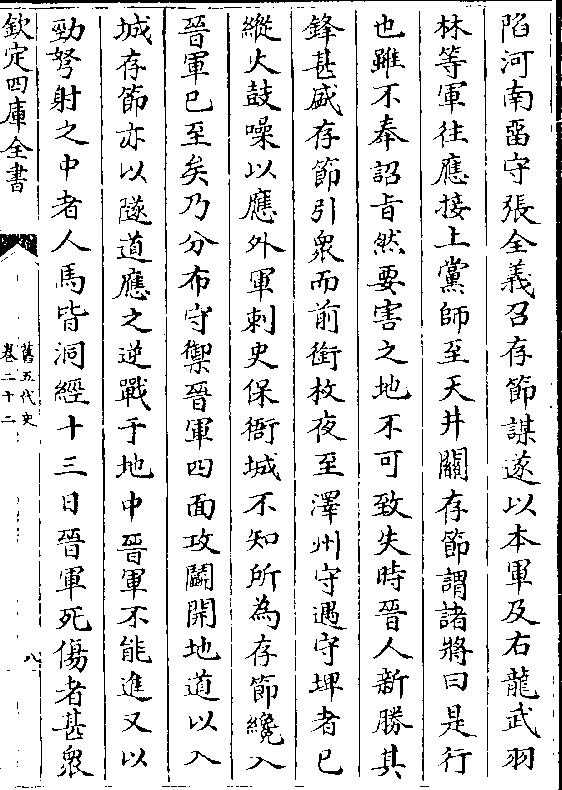 陷河南畱守張全義召存節謀遂以本軍及右龍武羽
林等軍往應接上黨師至天井關存節謂諸將曰是行
也雖不奉詔旨然要害之地不可致失時晉人新勝其
鋒甚盛存節引衆而前銜枚夜至澤州守遇守埤者已
縱火鼓噪以應外軍刺史保衙城不知所為存節纔入
晉軍已至矣乃分布守禦晉軍四面攻鬭開地道以入
城存節亦以隧道應之逆戰于地中晉軍不能進又以
勁弩射之中者人馬皆洞經十三日晉軍死傷者甚衆
欽定四庫全書
舊五代史
卷二十二
八